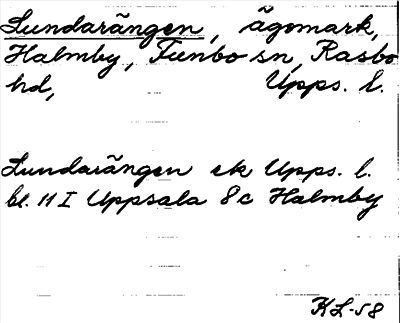 Lundarängen, ägomark,
Halmby, Funbo sn, Rasbo
hd, Upps. l.
Lundarängen ek Upps. l.
bl. 11 I Uppsala 8c Halmby
KL-58